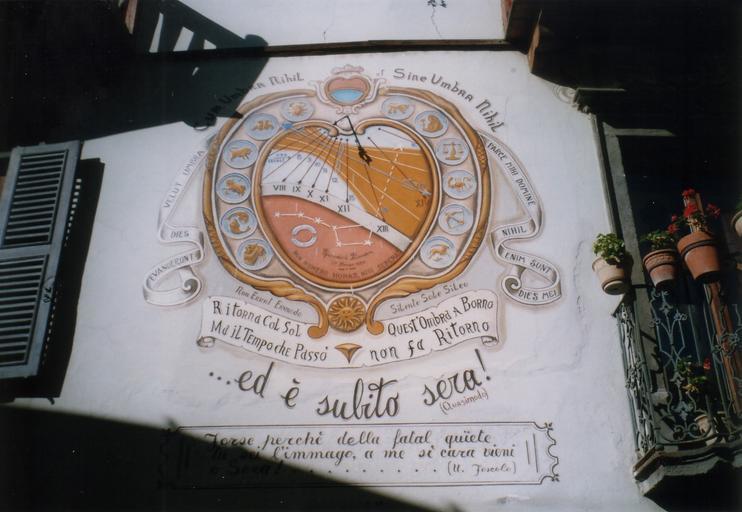 Cum Umbra Nihil
Sine Umbra Nihil
VELUT UMBRA
DIES
EVANUERUNT
PARCE MIHI DOMINE
NIHIL
ENIM SUNT
DIES MEI
VIII IX X XI XII XIII
Sole Silente Sileo
Ritorna Col Sol
Ma il Tempo che Passò
Quest'Ombra A Borno
non fa Ritorno
...ed è subito sera!
(Quasimodo)
Forse perchè della fatal quïete
Tu sei l'immago, a me sì cara vieni
o Sera! . . . . . . . . . . (U. Foscolo)